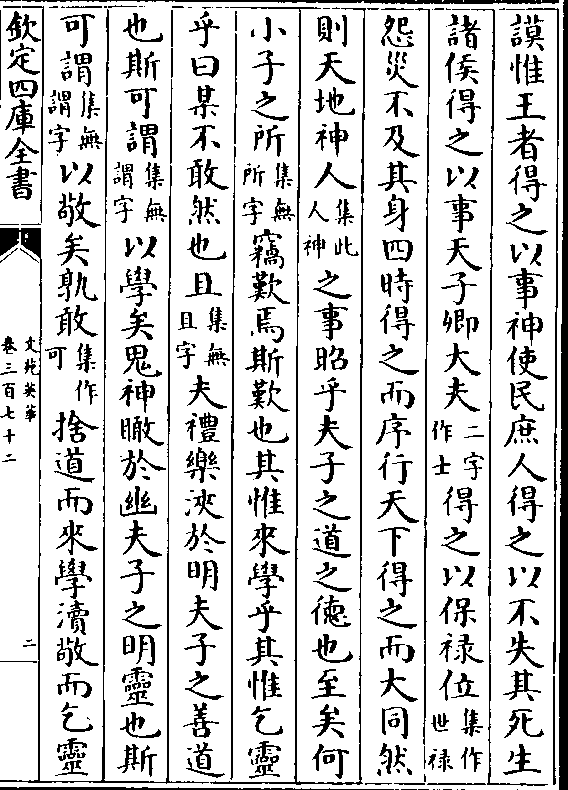 謨惟王者得之以事神使民庶人得之以不失其死生
諸侯得之以事天子卿大夫二字作士得之以保禄位集作世禄
怨災不及其身四時得之而序行天下得之而大同然
則天地神人集此人神之事昭乎夫子之道之德也至矣何
小子之所集無所字竊歎焉斯歎也其惟來學乎其惟乞靈
乎曰某不敢然也且集無且字夫禮樂浹於明夫子之善道
也斯可謂集無謂字以學矣鬼神瞰於幽夫子之明靈也斯
可謂集無謂字以敬矣孰敢集作可捨道而來學瀆敬而乞靈
欽定四庫全書
文苑英華
卷三百七十二
二